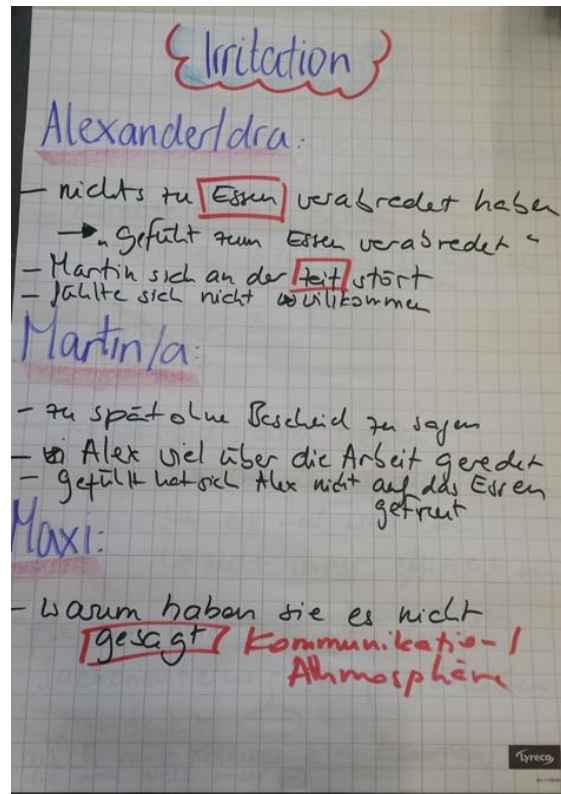 Irritation
Alexander/dra:
– nichts zu Essen verabredet haben
→ „Gefühlt zum Essen verabredet“
– Martin sich an der Zeit stört
– fühlte sich nicht willkommen
Martin/a:
– zu spät ohne Bescheid zu sagen
– Alex viel über die Arbeit geredet
– gefühlt hat sich Alex nicht auf das Essen
gefreut
Maxi:
– warum haben sie es nicht
gesagt Kommunikation/
Athmosphäre
Lyreco